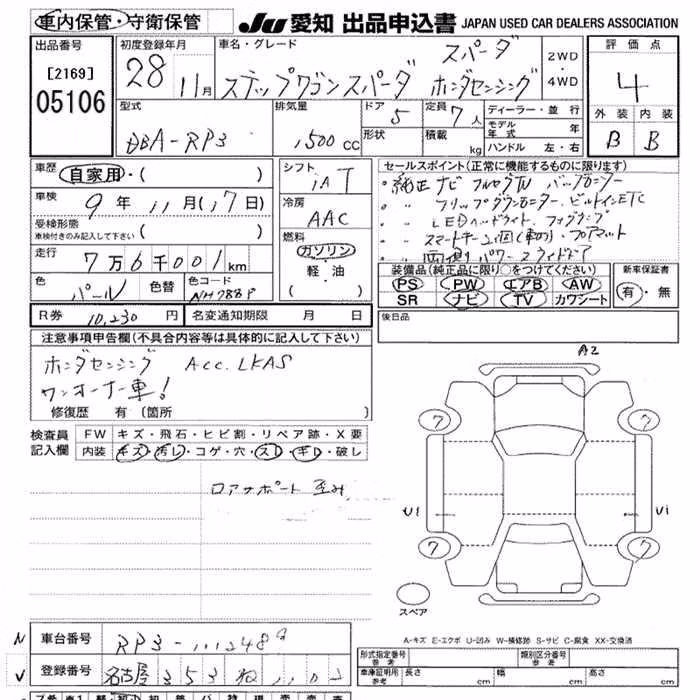 車内保管・守衛保管
JU 愛知 出品申込書 JAPAN USED CAR DEALERS ASSOCIATION
出品番号
[2169]
05106
初度登録年月
28 11月
車名・グレード
スパーダ
ステップワゴンスパーダ ホンダセンシング
2WD
・
4WD
評価点
4
外装 内装
B B
型式
DBA-RP3
排気量
1,500 CC
ドア 5
形状
定員 7人
積載 kg
ディーラー・並行
モデル年式 年
ハンドル 左・右
車歴
自家用・( )
車検
9年 11月(17日)
受検形態
車検付きのみ記入して下さい ( )
走行
7万6千001km
色 パール
色替
色コード
NH788P
シフト
IAT
冷房
AAC
燃料
ガソリン
・
軽・油
( )
セールスポイント(正常に機能するものに限ります)
・純正 ナビ フルセグTV バックカメラー
・ 〃 フリップダウンモニター. ビルトインETC
・ 〃 LEDヘッドライト. フォグランプ
・ 〃 スマートキー2個
・ 〃 両側パワースライドドア
装備品(純正品に限り○をつけてください)
PS PW エアB AW
SR ナビ TV カワシート
新車保証書
有・無
R券 10,230 円
名変通知期限 月 日
後日品
注意事項申告欄(不具合内容等は具体的に記入して下さい)
ホンダセンシング ACC. LKAS
ワンオーナー車!
修復歴 有(箇所 )
検査員
記入欄
FW キズ・飛石・ヒビ割・リペア跡・X要
内装 キズ・汚レ・コゲ・穴・スレ・ギレ・破レ
ロアサポート 歪み
A2
7 7
U1 U1
7 7
スペア
A-キズ E-エクボ U-凹み W-補修跡 S-サビ C-腐食 XX-交換済
N 車台番号 RP3-
V 登録番号 名古屋 353
形式指定番号
参考
類別区分番号
参考
車庫証明用
参考
長さ cm 幅 cm 高さ cm